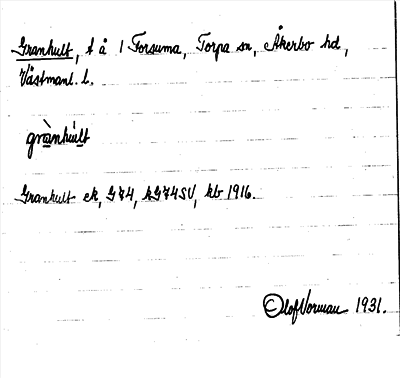 Granhult, t å 1 Forsuma, Torpa sn, Åkerbo hd,
Västmanl. l.
grànhúlt
Granhult ek, G74, kG74SV, kb 1916.
Olof Norman 1931.